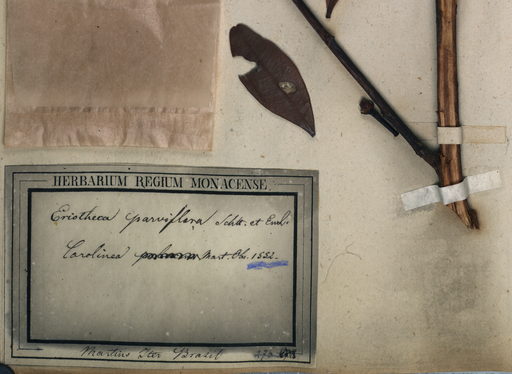 HERBARIUM REGIUM MONACENSE.
Eriotheca parviflora Schtt. et Endl.
Carolinea Mart. Obs. 1552.
Martius Iter Brasil